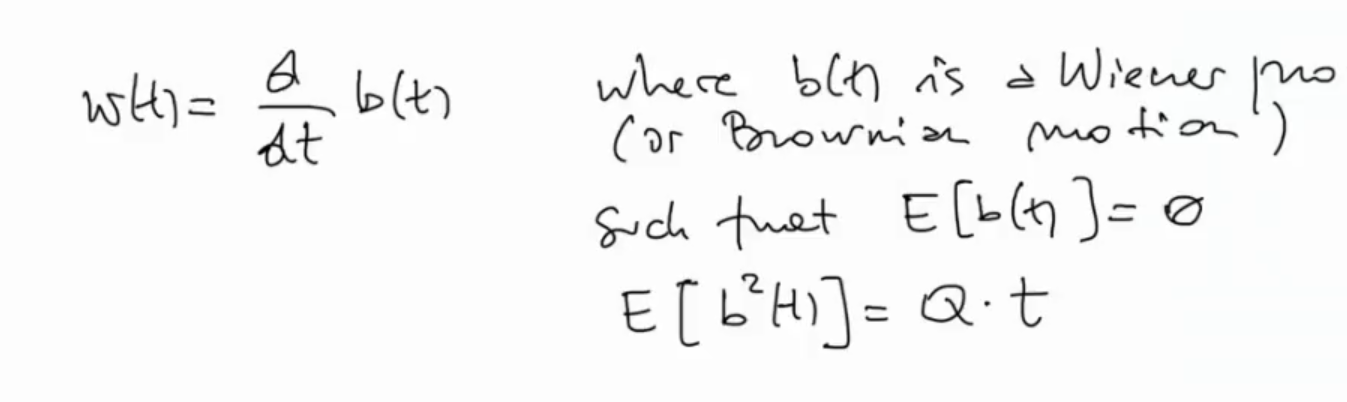 w(t) = d/dt b(t) where b(t) is a Wiener pro
(or Brownian motion)
such that E[b(t)] = 0
E[b²(t)] = Q · t